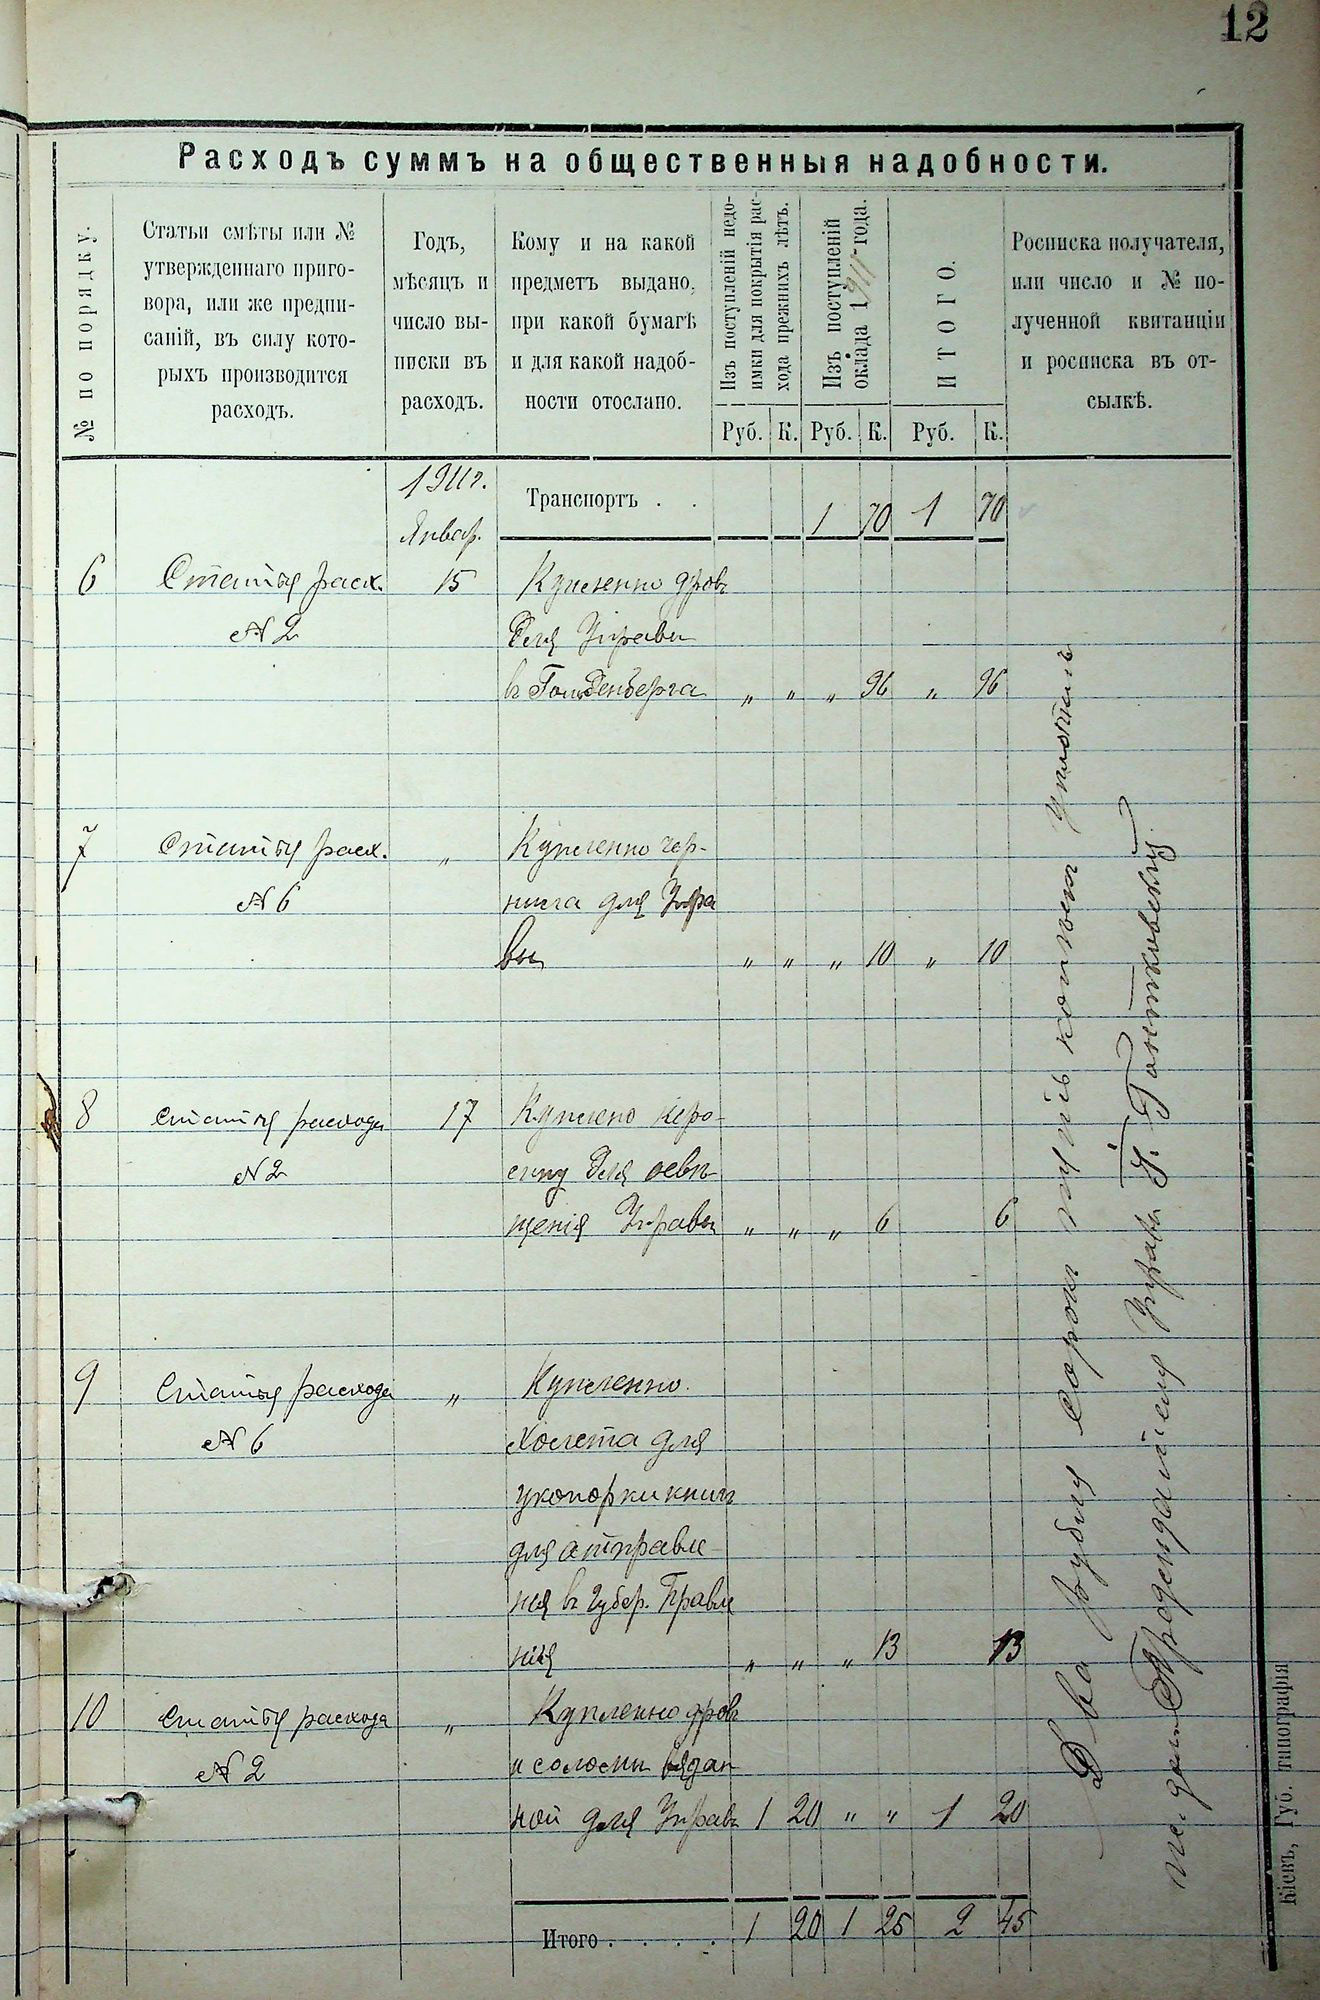 12
Расходъ суммъ на общественныя надобности.
№ по порядку.
Статьи смѣты или №
утвержденнаго приго-
вора, или же предпи-
саній, въ силу кото-
рыхъ производится
расходъ.
Годъ,
мѣсяцъ и
число вы-
писки въ
расходъ.
Кому и на какой
предметъ выдано,
при какой бумагѣ
и для какой надоб-
ности отослано.
Изъ поступленій недо-
имки для покрытія рас-
хода прежнихъ лѣтъ.
Изъ поступленій
оклада 1911 года.
ИТОГО.
Росписка получателя,
или число и № по-
лученной квитанціи
и росписка въ от-
сылкѣ.
Руб. К. Руб. К. Руб. К.
1911 г. Транспортъ . . 1 70 1 70
Январ.
6 Статья расх. 15 Купленно дровъ
№ 2 для Управы
в Гольденберга " " " 96 " 96
7 Статья расх. " Купленно чер-
№ 6 нила для Упра
вы " " " 10 " 10
8 Статья расхода 17 Куплено керо-
№ 2 сину для освѣ
щенія Управы " " " 6 6
9 Статья расхода " Купленно
№ 6 холста для
укопорки книг
для атправле
ния в Губер. Правле
нія " " " 13 13
10 Статья расхода " Купленно дровъ
№ 2 и соломы вязан
ной для Управы 1 20 " " 1 20
Итого . . . . 1 20 1 25 2 45
Два рубля сорок пять копеек уплотилъ
Председателя Управы
Кіевъ, Губ. типографія